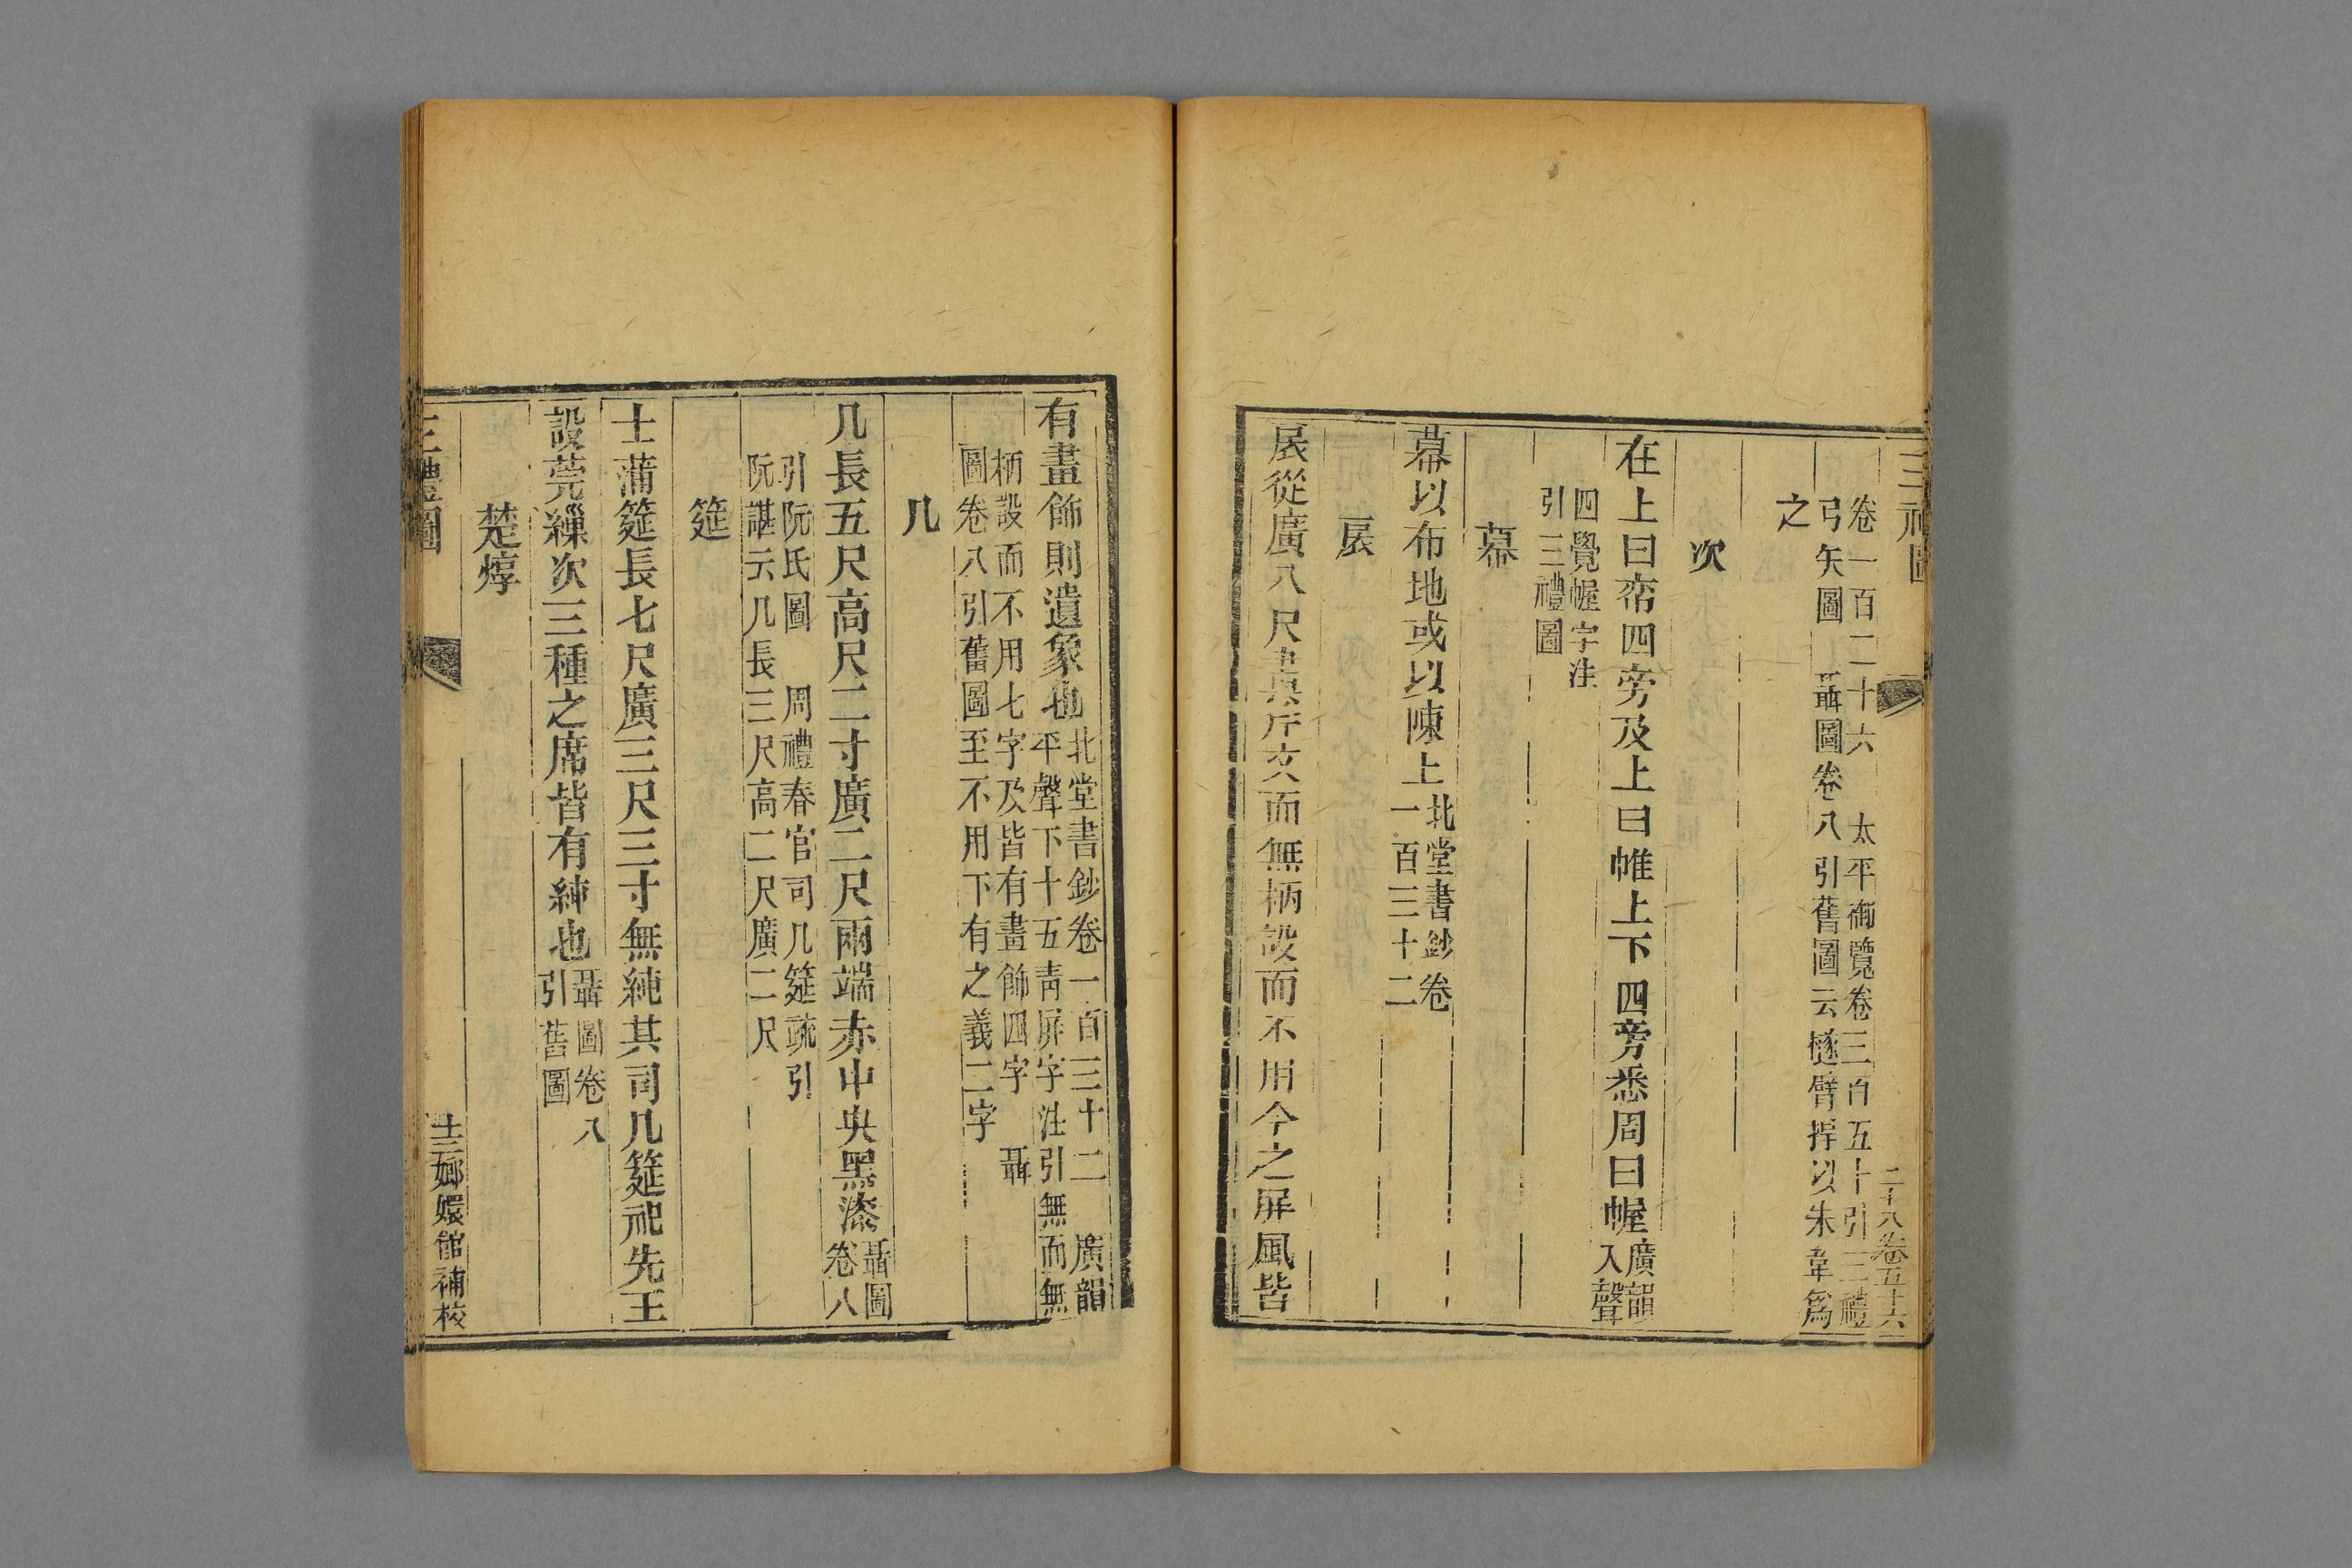 三禮圖
二十八卷五十六
卷一百二十六 太平御覽卷三百五十引三禮
弓矢圖 聶圖卷八引舊圖云𢐄臂捍以朱韋爲
之
次
在上曰帟四旁及上曰帷上下四旁悉周曰幄廣韻
入聲
四覺幄字注
引三禮圖
幕
幕以布地或以陳上北堂書鈔卷
一百三十二
扆
扆從廣八尺畫斧文而無柄設而不用今之屏風皆
有畫飾則遺象也北堂書鈔卷一百三十二 廣韻
平聲下十五靑屏字注引無而無
柄設而不用七字及皆有畫飾四字 聶
圖卷八引舊圖至不用下有之義二字
几
几長五尺高尺二寸廣二尺兩端赤中央黑漆聶圖
卷八
引阮氏圖 周禮春官司几筵疏引
阮諶云几長三尺高二尺廣二尺
筵
士蒲筵長七尺廣三尺三寸無純其司几筵祀先王
設莞繅次三種之席皆有純也聶圖卷八
引舊圖
楚焞
三禮圖
十三
嫏嬛館補校